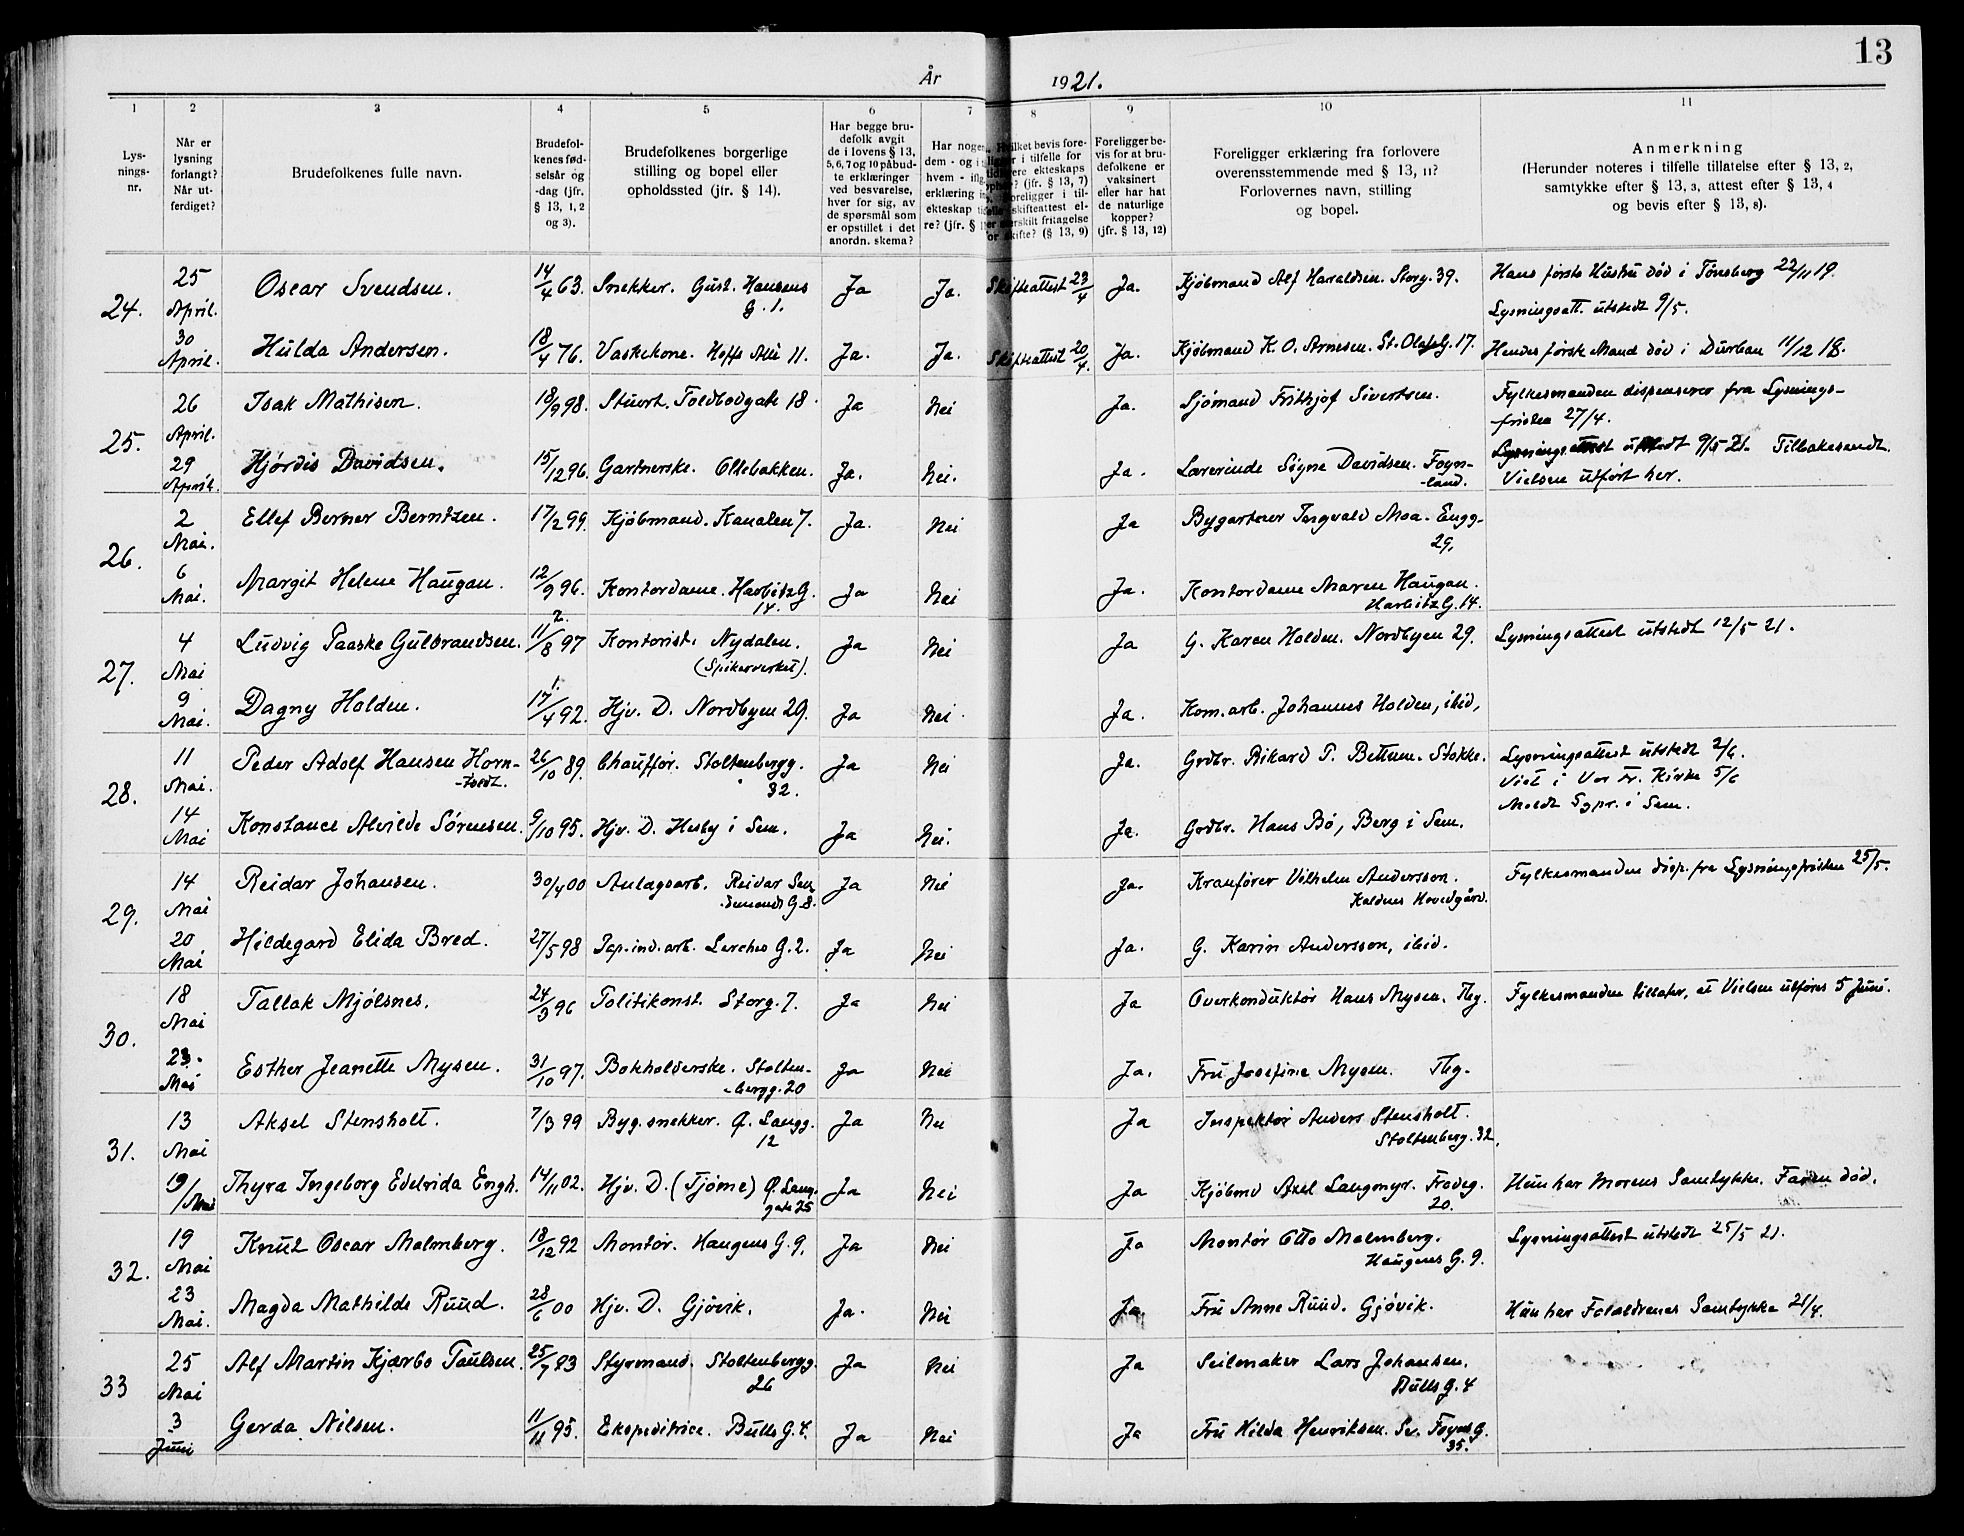 13
År 1921.
1 2 3 4 5 6 7 8 9 10 11
Lys-
nings-
nr.
Når er
lysning
forlangt?
Når ut-
ferdiget?
Brudefolkenes fulle navn.
Brudefol-
kenes fød-
selsår og
-dag (jfr.
§ 13, 1, 2
og 3).
Brudefolkenes borgerlige
stilling og bopel eller
opholdssted (jfr. § 14).
Har begge bru-
defolk avgit
de i lovens § 13,
5, 6, 7 og 10 påbud-
te erklæringer
ved besvarelse,
hver for sig, av
de spørsmål som
er opstillet i det
anordn. skema?
Har nogen
dem - og i
hvem - iflg.
erklæring
ekteskap
re? (jfr. §
bevis fore-
i tilfelle for
ekteskaps
(jfr. § 13, 7)
Foreligger i til-
skifteattest el-
særskilt fritagelse
for skifte? (§ 13, 9)
Foreligger be-
vis for at bru-
defolkene er
vaksinert
eller har hat
de naturlige
kopper?
(jfr. § 13, 12)
Foreligger erklæring fra forlovere
overensstemmende med § 13, 11?
Forlovernes navn, stilling
og bopel.
Anmerkning
(Herunder noteres i tilfelle tillatelse efter § 13, 2,
samtykke efter § 13, 3, attest efter § 13, 4
og bevis efter § 13, 8).
24. 25 April. Oscar Svendsen. 14/4 63. Snekker. Gust. Hansens G. 1. Ja Ja. Skifteattest 23/4 Ja. Kjöbmand Alf Haraldsen. Storg. 39. Hans förste Hustru död i Tönsberg 22/11 19.
Lysningsatt. utstedt 9/5.
30 April. Hulda Andersen. 18/4 76. Vaskekone. Hoffs Allé 11. Ja. Ja. Skifteattest 20/4. Ja. Kjöbmand K. O. Arnesen. St. Olafs G. 17. Hendes förste Mand död i Durban 11/12 18.
25. 26 April. Isak Mathisen. 18/9 98. Stuert. Toldbodgate 18. Ja Nei Ja. Sjömand Frithjof Sivertsen. Fylkesmanden dispenserer fra Lysnings-
fristen 27/4.
29 April. Hjördis Davidsen. 15/12 96. Gartnerske. Ollebakken. Ja. Nei. Ja. Lærerinde Signe Davidsen. Foyn-
land. Lysningsattest utstedt 9/5 21. Tilbakesendt.
Vielsen utfört her.
26. 2 Mai. Ellef Berner Berntzen. 17/2 99. Kjöbmand. Kanalen 7. Ja. Nei Ja Bygartner Ingvald Moa. Engg.
29.
6 Mai. Margit Helene Haugan. 12/9 96. Kontordame. Harbitz G.
14. Ja Nei Ja. Kontordame Maren Haugan.
Harbitz G. 14.
27. 4 Mai 2. Ludvig Paaske Gulbrandsen. 11/8 97 Kontorist. Nydalen.
(Spikerverket). Ja Nei Ja G. Karen Holden. Nordbyen 29. Lysningsattest utstedt 12/5 21.
9 Mai. 1. Dagny Holden. 17/4 92. Hjv. D. Nordbyen 29. Ja Nei. Ja. Kom.arb. Johannes Holden, ibid.
28. 11 Mai. Peder Adolf Hansen Horn-
toedt. 26/10 89. Chauffør. Stoltenbergg.
32. Ja Nei Ja. Grdbr. Rikard P. Bettum. Stokke. Lysningsattest utstedt 2/6.
Viet i Vor Fr. Kirke 5/6
Meldt Sgpr. i Sem.
14 Mai Konstance Alvilde Sörensen. 9/10 95. Hjv. D. Husby i Sem. Ja Nei. Ja. Grdbr. Hans Bö, Berg i Sem.
29. 14 Mai Reidar Johansen. 30/4 00 Anlagsarb. Reidar Sen-
demands G 8. Ja Nei Ja. Kranförer Vilhelm Andersson.
Kaldnes Hovedgård. Fylkesmanden disp. fra Lysningsfristen 25/5.
20 Mai Hildegard Elida Bred. 27/5 98 Pap.ind.arb. Lerches G. 2. Ja Nei Ja. G. Karin Andersson, ibid.
30. 18 Mai Tallak Mjölsnes. 24/3 96 Politikonst. Storg. 7. Ja Nei Ja Overkonduktör Hans Mysen. Tbg. Fylkesmanden tillater, at Vielsen utföres 5 Juni.
23. Mai Esther Jeanette Mysen. 31/10 97. Bokholderske. Stolten-
bergg. 20 Ja Nei Ja. Fru Josefine Mysen. Tbg.
31. 13 Mai Aksel Stensholt. 7/3 99 Byg.snekker. Ö. Langg.
12 Ja Nei Ja Inspektör Anders Stensholt.
Stoltenberg. 32.
19/Mai Thyra Ingeborg Edelrida Engh. 14/11 02. Hjv. D. (Tjöme) Ö. Lang-
gate 25 Ja Nei Ja Kjöbmd Axel Langmyr. Fredeg.
20. Hun har Morens Samtykke. Faren död.
32. 19 Mai Knut Oscar Malmberg. 18/12 92 Montör. Haugens G. 9. Ja Nei Ja Montör Otto Malmberg.
Haugens G. 9. Lysningsattest utstedt 25/5 21.
23 Mai. Magda Mathilde Ruud. 28/6 00 Hjv. D. Gjövik. Ja. Nei Ja. Fru Anne Ruud. Gjövik. Hun har Forældrenes Samtykke 21/4.
33 25 Mai Alf Martin Kjærbo Paulsen. 25/7 93 Styrmand. Stoltenbergg.
26 Ja Nei Ja Seilmaker Lars Johansen.
Bulls G. 4
3 Juni Gerda Nilsen. 11/11 95. Ekspeditrice. Bulls G. 4. Ja Nei Ja Fru Hilda Henriksen. Sv. Foyns G.
35.